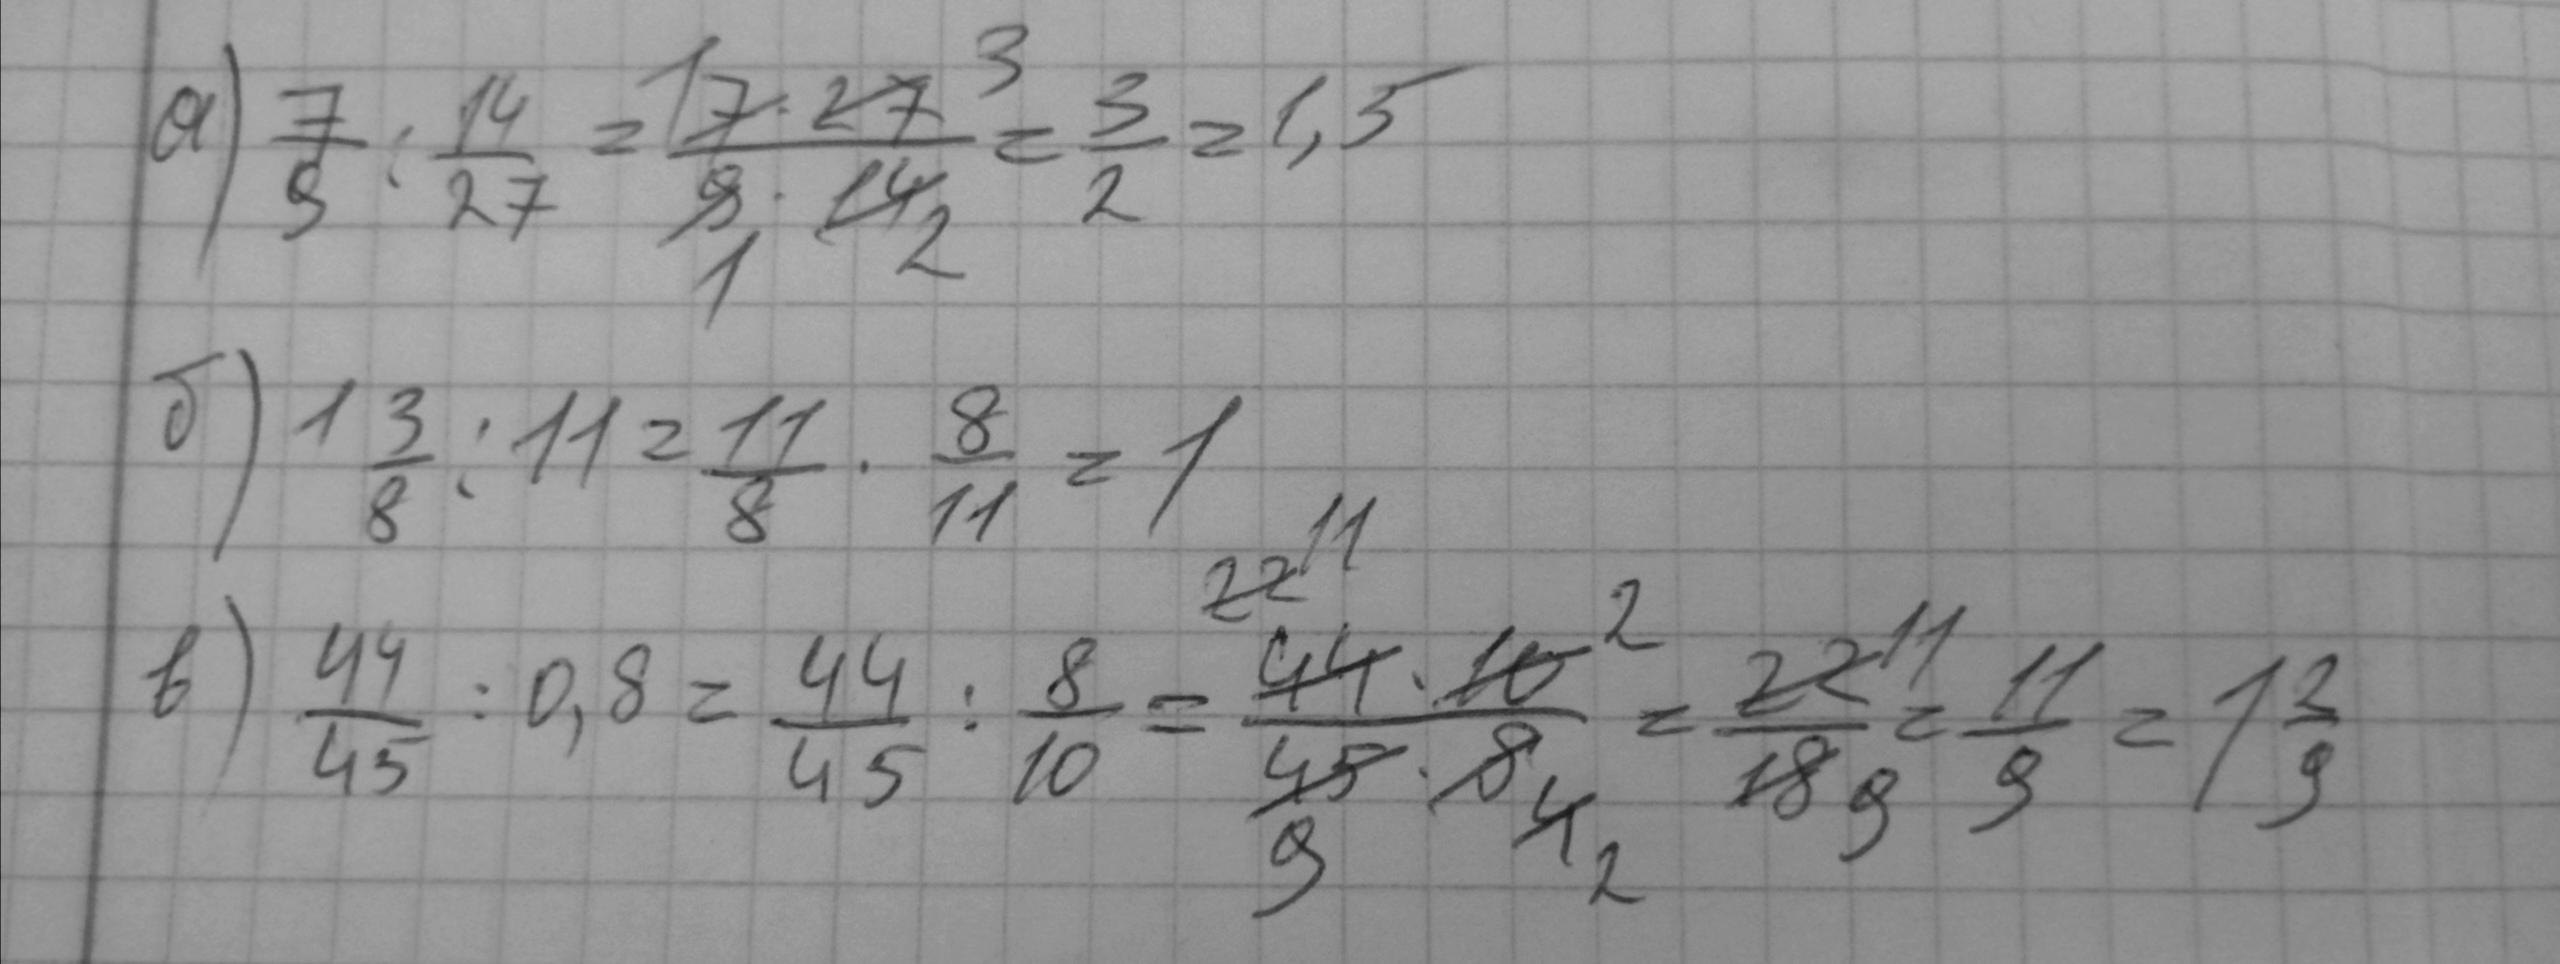 а) 7/9 : 14/27 = 1 7 · 27 3 / 9 · 14 1 2 = 3/2 = 1,5
б) 1 3/8 : 11 = 11/8 · 8/11 = 1
в) 44/45 : 0,8 = 44/45 : 8/10 = 22 11 44 · 10 2 / 45 · 8 9 4 2 = 22 11 / 18 9 = 11/9 = 1 2/9